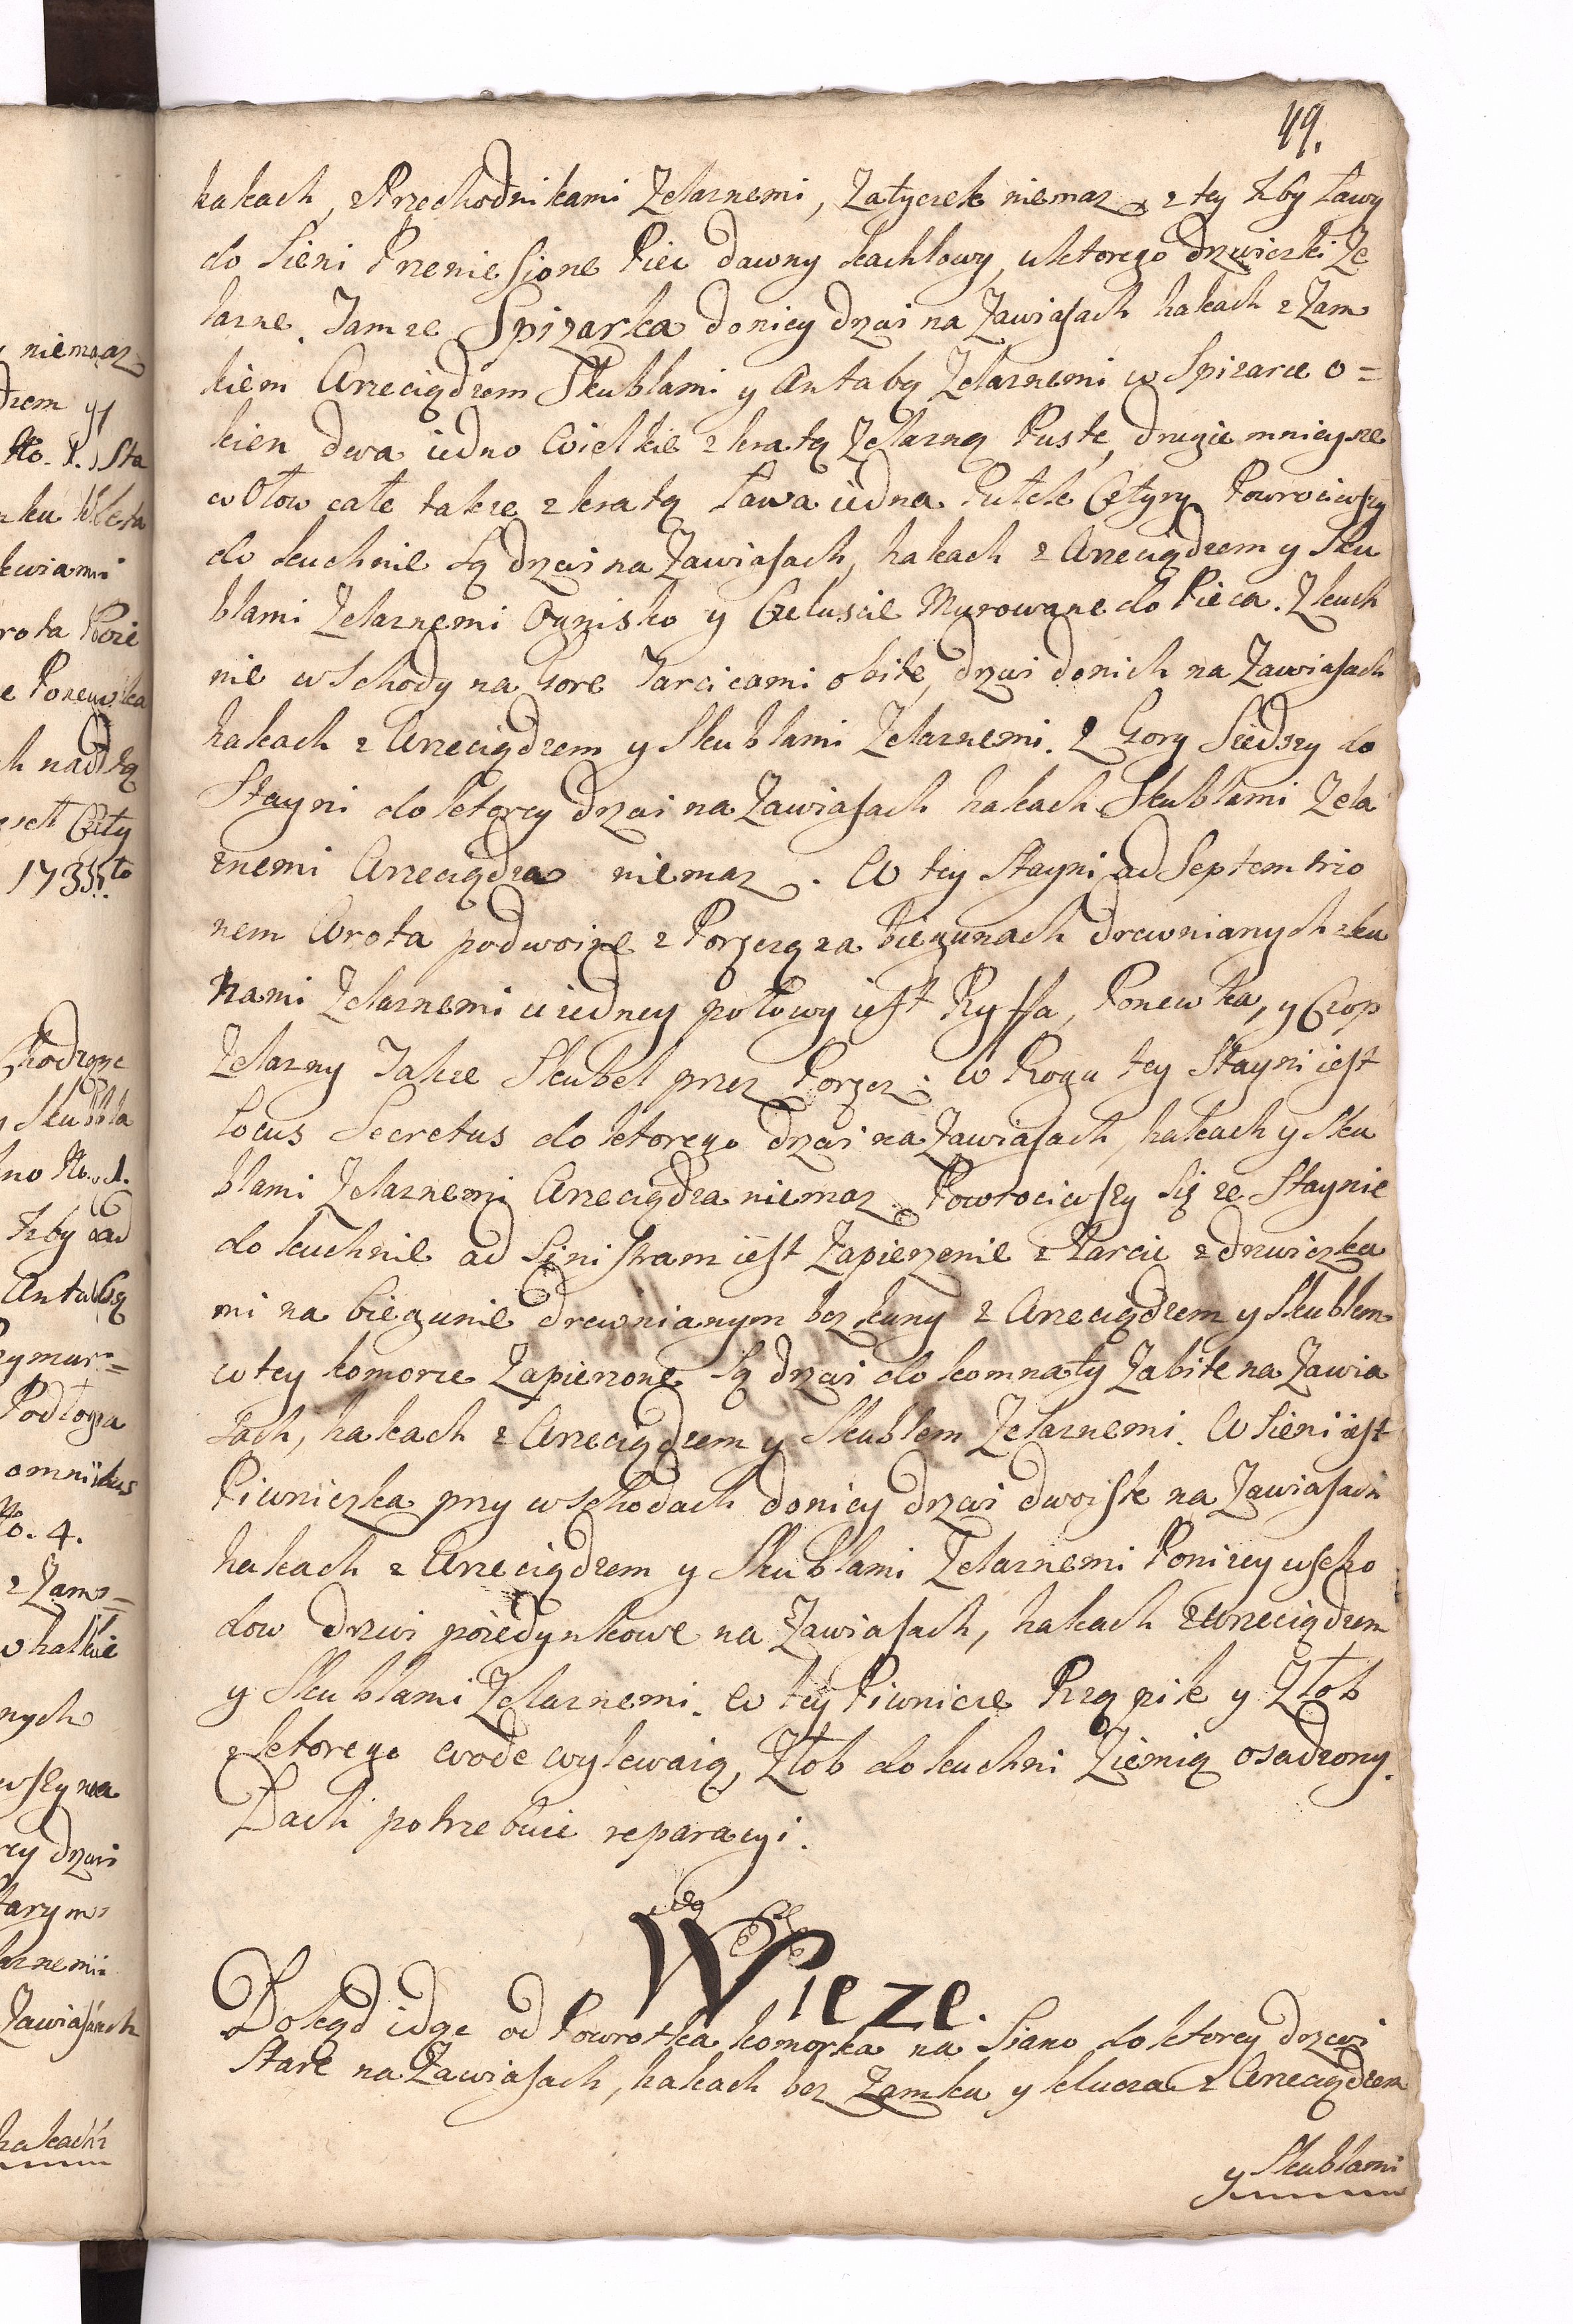 49.
hakach, z Przechodnikami Zelaznemi, Zatyczek niemasz z tey Izby Ławy
do Sieni Przeniesione Piec dawny kachlowy, u ktorego drzwiczki Ze
lazne. Tamze Spizarka do niey drzwi na Zawiasach hakach z Zam
kiem Wrzeciądzem Skublami y Antabą Zelaznemi w Spizarce o=
kien dwa iedno Wielkie z kratą Zelazną Puste, drugie mnieysze
w Ołow całe takze z kratą Ława iedna Pułek Cztyry Powrociwszy
do kuchnie są drzwi na Zawiasach, hakach z Wrzeciądzem y Sku
blami Zelaznemi Ognisko y Czeluscie Murowane do Pieca. Z kuch
nie wschody na Gore Tarcicami obite, drzwi do nich na Zawiasach
hakach z Wrzeciądzem y Skublami Zelaznemi. Z Gory Szedszy do
Stayni do ktorey drzwi na Zawiasach hakach Skublami Zela
znemi Wrzeciądza niemasz. W tey Stayni ad Septemtrio
nem Wrota podwoine z Forszczą na biegunach drewnianych z ku
nami Zelaznemi u iedney połowy iest Ryffa, Ponewka, y Czop
Zelazny Takze Skubel przez Forszcz. W Rogu tey Stayni iest
Locus Secretus do ktorego drzwi na Zawiasach, hakach y Sku
blami Zelaznemi Wrzeciądza niemasz. Powrociwszy się ze Staynie
do kuchnie ad Sinistram iest Zapierzenie z Tarcic z drzwiczka
mi na biegunie drewnianym bez kuny z Wrzeciądzem y Skublem
w tey komorze Zapierzone są drzwi do komnaty Zabite na Zawia
sach, hakach z Wrzeciądzem y Skublem Zelaznemi. W Sieni iest
Piwniczka przy wschodach do niey drzwi dwoiste na Zawiasach
hakach z Wrzeciądzem y Skublami Zelaznemi Ponizey wscho
dow drzwi poiedynkowe na Zawiasach, hakach z Wrzeciądzem
y Skublami Zelaznemi. W tey Piwnicze Rząpik y Złob
z ktorego wode wylewaią, Złob do kuchni Ziemią osadzony.
Dach potrzebuie reparacyi.
Wieze.
Dotąd idąc od Powrotka komorka na Siano do ktorey drzwi
Stare na Zawiasach, hakach bez Zamku y klucza z Wrzeciądzem
y Skublami